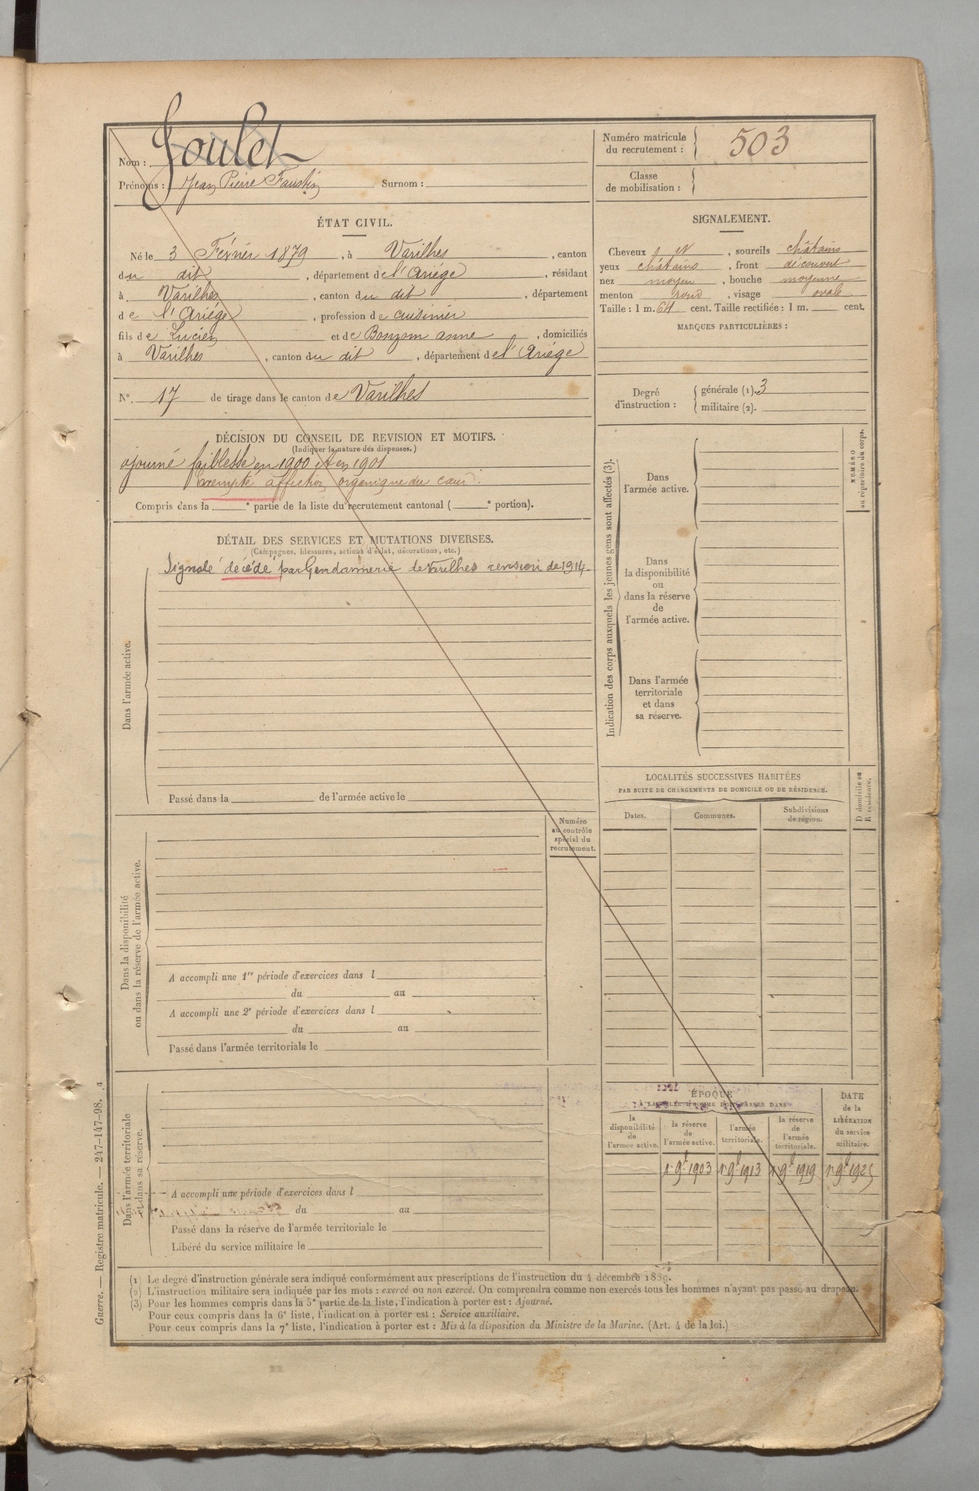 Nom : Goulet
Prénoms : Jean Pierre Faustin Surnom :
ÉTAT CIVIL.
Né le 3 Février 1879, à Varilhes, canton
du dit, département de l'Ariège, résidant
à Varilhes, canton du dit, département
de l'Ariège, profession de cuisinier
fils de Lucien et de Bonzom anne, domiciliés
à Varilhes, canton du dit, département de l'Ariège
N°. 17 de tirage dans le canton de Varilhes
DÉCISION DU CONSEIL DE REVISION ET MOTIFS.
(Indiquer la nature des dispenses.)
ajourné faiblesse en 1900 et en 1901
exempté affection organique du cœur.
Compris dans la ° partie de la liste du recrutement cantonal ( ° portion).
DÉTAIL DES SERVICES ET MUTATIONS DIVERSES.
(Campagnes, blessures, actions d'éclat, décorations, etc.)
Signalé décédé par Gendarmerie de Varilhes revision de 1914.
Dans l'armée active.
Passé dans la de l'armée active le
Numéro
au contrôle
spécial du
recrutement.
Dans la disponibilité
ou dans la réserve de l'armée active.
A accompli une 1re période d'exercices dans l
du au
A accompli une 2e période d'exercices dans l
du au
Passé dans l'armée territoriale le
Dans l'armée territoriale
et dans sa réserve.
A accompli une période d'exercices dans l
du au
Passé dans la réserve de l'armée territoriale le
Libéré du service militaire le
Numéro matricule
du recrutement : 503
Classe
de mobilisation :
SIGNALEMENT.
Cheveux , sourcils châtains
yeux châtains, front découvert
nez moyen, bouche moyenne
menton rond, visage ovale
Taille : 1 m. 64 cent. Taille rectifiée : 1 m. cent.
MARQUES PARTICULIÈRES :
Degré
d'instruction :
générale (1). 3
militaire (2).
Indication des corps auxquels les jeunes gens sont affectés (3).
Dans
l'armée active.
Dans
la disponibilité
ou
dans la réserve
de
l'armée active.
Dans l'armée
territoriale
et dans
sa réserve.
NUMÉRO
au répertoire du corps.
LOCALITÉS SUCCESSIVES HABITÉES
PAR SUITE DE CHANGEMENTS DE DOMICILE OU DE RÉSIDENCE.
Dates. Communes. Subdivisions
de région.
D domicile ou
R résidence.
ÉPOQUE
la
disponibilité
de
l'armée active.
la réserve
de
l'armée active.
l'armée
territoriale.
la réserve
de
l'armée
territoriale.
DATE
de la
LIBÉRATION
du service
militaire.
1er 9bre 1903 1er 9bre 1913 1er 9bre 1919 1er 9bre 1925
(1) Le degré d'instruction générale sera indiqué conformément aux prescriptions de l'instruction du 4 décembre 1889.
(2) L'instruction militaire sera indiquée par les mots : exercé ou non exercé. On comprendra comme non exercés tous les hommes n'ayant pas passé au drapeau.
(3) Pour les hommes compris dans la 5e partie de la liste, l'indication à porter est : Ajourné.
Pour ceux compris dans la 6e liste, l'indication à porter est : Service auxiliaire.
Pour ceux compris dans la 7e liste, l'indication à porter est : Mis à la disposition du Ministre de la Marine. (Art. 4 de la loi.)
Guerre. — Registre matricule. — 247-147-98.